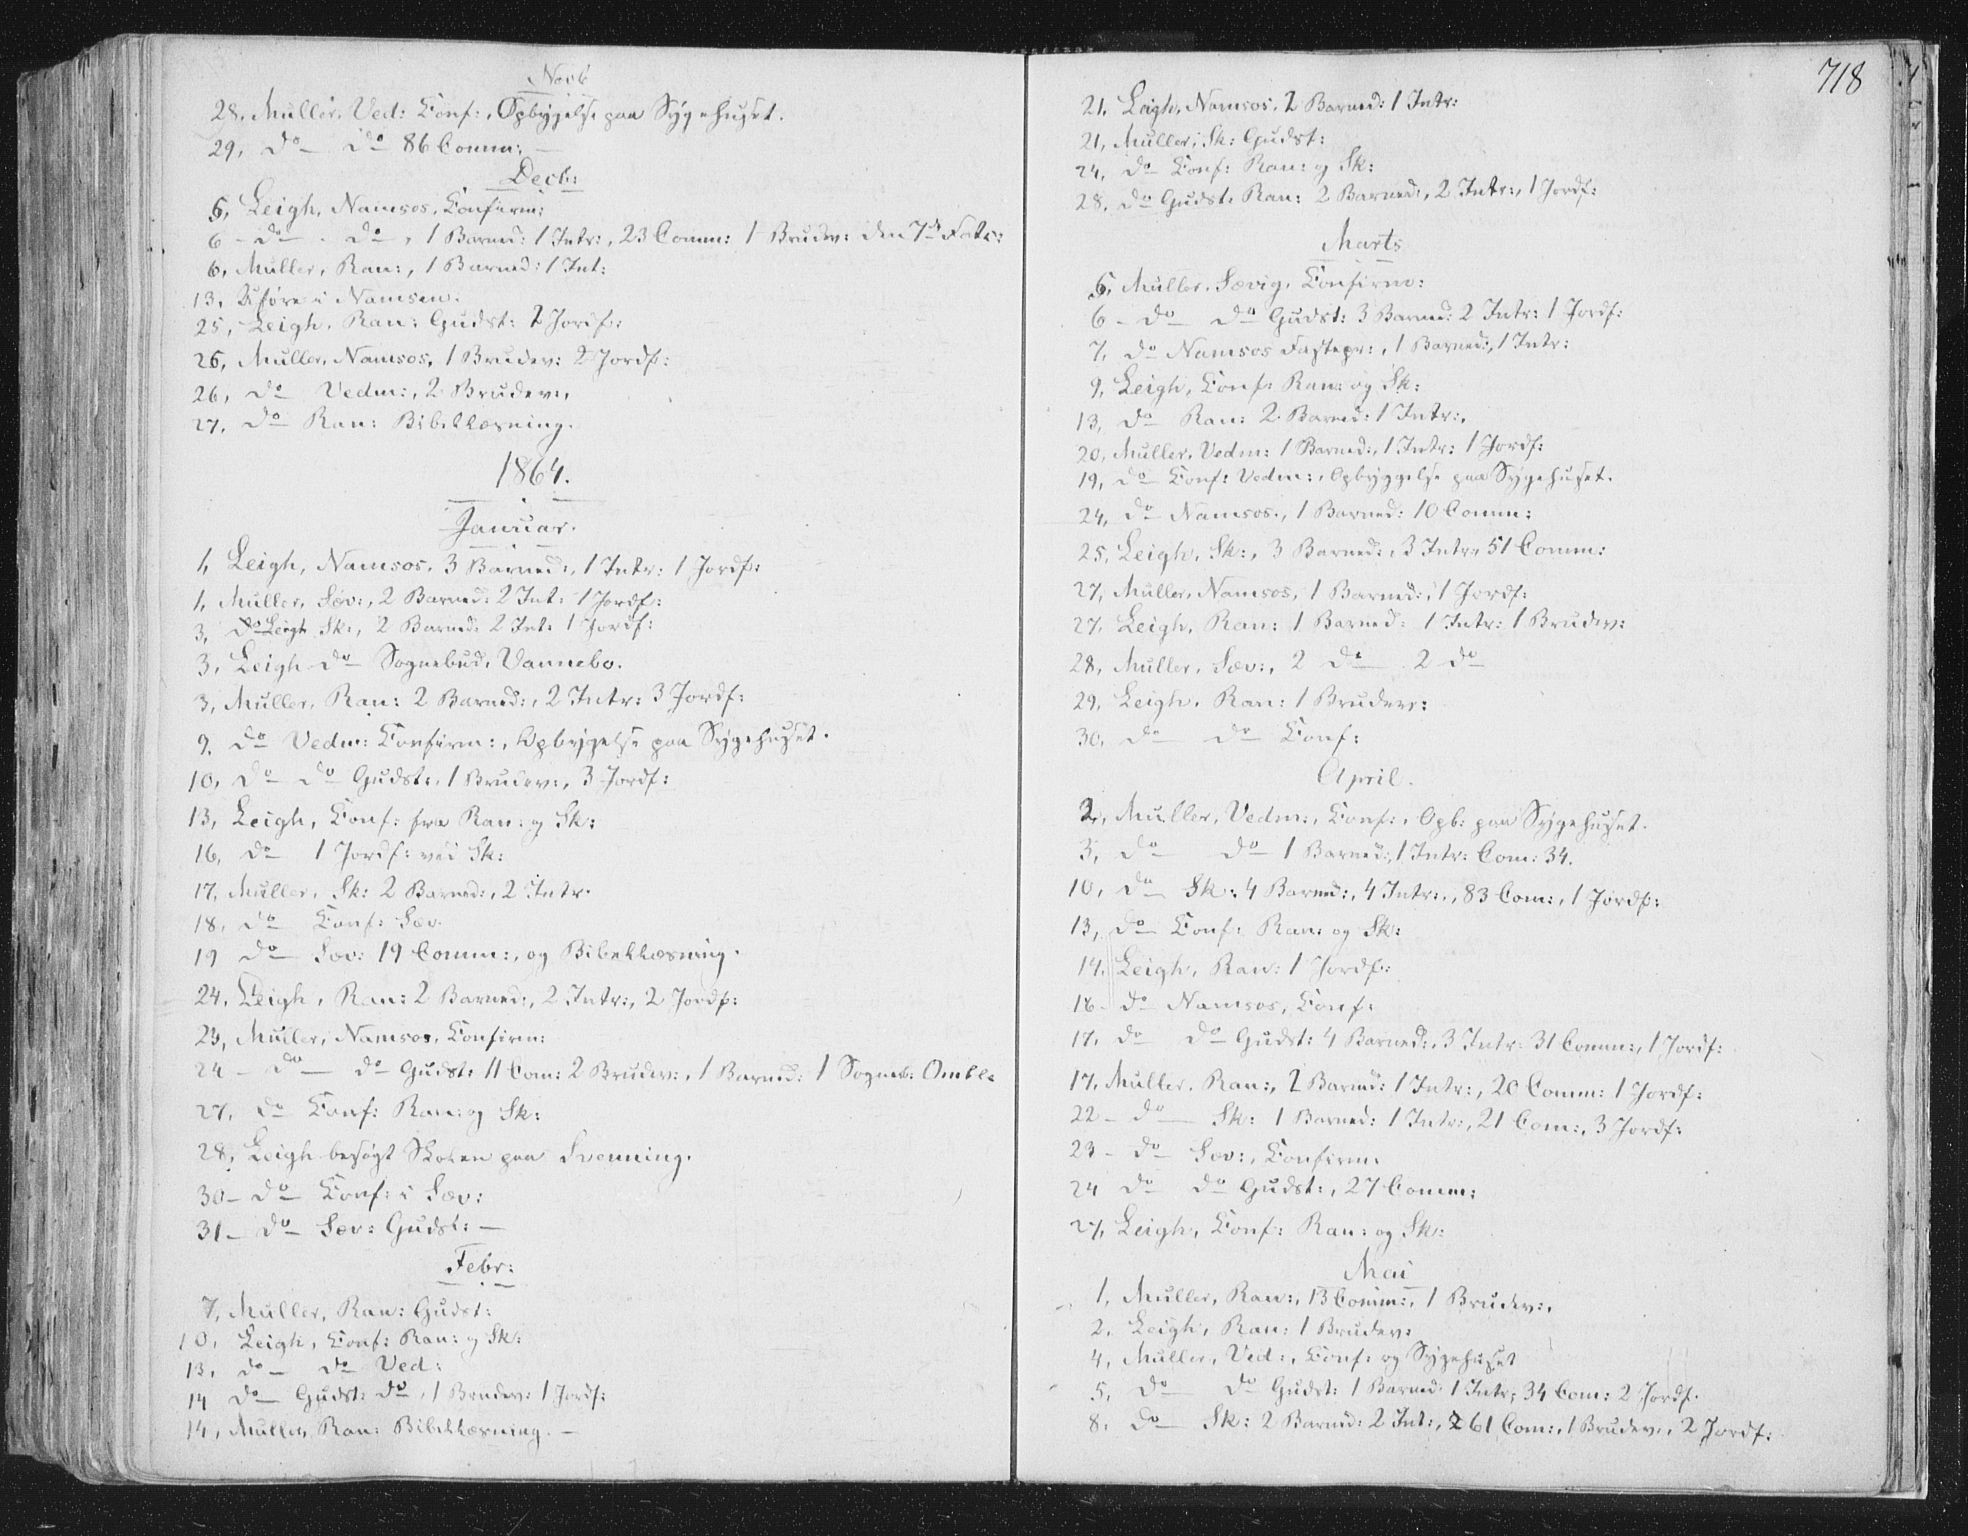 Novb
28, Muller, Ved: Conf:, Opbygelse paa Sygehuset.
29, do do 86 Comm:
Decb:
5, Leigh, Namsos, Confirm:
6 - do - do, 1 Barned: 1 Intr:, 23 Comm: 1 Brudev: den 7de
6, Muller, Ran:, 1 Barned: 1 Int:
13, Uføre i Namsen.
25, Leigh, Ran: Gudst: 2 Jordf:
25, Muller, Namsos, 1 Brudev: 2 Jordf:
26, do Vedm:, 2 Brudev:,
27, do Ran: Bibellæsning.
1864.
Januar.
1, Leigh, Namsos, 3 Barned:, 1 Intr: 1 Jordf:
1, Muller, Sæv:, 2 Barned: 2 Int: 1 Jordf:
3, do Leigh Sk:, 2 Barned: 2 Int: 1 Jordf:
3, Leigh do Sognebud, Vannebo.
3, Muller, Ran: 2 Barned:, 2 Intr: 3 Jordf:
9, do Vedm: Confirm:, Opbygelse paa Sygehuset.
10, do do Gudst:, 1 Brudev:, 3 Jordf:
13, Leigh, Conf: fra Ran: og Sk:
16, do 1 Jordf: ved Sk:
17, Muller, Sk: 2 Barned:, 2 Intr.
18, do Conf: Sæv.
19 do Sæv: 19 Comm:, og Bibellæsning.
24, Leigh, Ran: 2 Barned:, 2 Intr:, 2 Jordf:
23, Muller, Namsos, Confirm:
24 - do - do Gudst: 11 Com: 2 Brudev:, 1 Barned: 1 Sogneb:
27, do Conf: Ran: og Sk:
28, Leigh besøgt Skolen paa Svenning.
30 - do Conf: i Sæv:
31 - do Sæv: Gudst: -
Febr:
7, Muller, Ran: Gudst:
10, Leigh, Conf: Ran: og Sk:
13, do - do Ved:
14 do - Gudst: do, 1 Brudev: 1 Jordf:
14, Muller, Ran: Bibellæsning. -
718
21, Leigh, Namsos, 2 Barned: 1 Intr:
21, Muller, Sk: Gudst:
24, do Conf: Ran: og Sk:
28, do Gudst: Ran: 2 Barned:, 2 Intr:, 1 Jordf:
Marts
5, Muller, Sævig, Confirm:
6 - do do Gudst: 3 Barned: 2 Intr: 1 Jordf:
7, do Namsos Fastepr:, 1 Barned:, 1 Intr:
9, Leigh, Conf: Ran: og Sk:
13, do Ran: 2 Barned: 1 Intr:,
20, Muller, Vedm: 1 Barned:, 1 Intr: 1 Jordf:
19, do Conf: Vedm:, Opbyggelse paa Sygehuset.
24, do Namsos, 1 Barned: 10 Comm:
25, Leigh, Sk:, 3 Barned:, 3 Intr, 51 Comm:
27, Muller, Namsos, 1 Barned:, 1 Jordf:
27, Leigh, Ran: 1 Barned: 1 Intr: 1 Brudev:
28, Muller, Sæv:, 2 do 2 do
29, Leigh, Ran: 1 Brudev:
30, do do Conf:
April.
2, Muller, Vedm:, Conf:, Opb: paa Sygehuset.
3, do do 1 Barned:, 1 Intr: Com: 34.
10, do Sk: 4 Barned:, 4 Intr:, 83 Com:, 1 Jordf:
13, do Conf: Ran: og Sk:
14, Leigh, Ran: 1 Jordf:
16 - do Namsos, Conf:
17, do do Gudst: 4 Barned:, 3 Intr: 31 Comm:, 1 Jordf:
17, Muller, Ran:, 2 Barned: 1 Intr:, 20 Comm: 1 Jordf:
22 - do Sk: 1 Barned: 1 Intr:, 21 Com:, 3 Jordf:
23 - do Sæv:, Confirm.
24 do do Gudst:, 27 Comm:
27, Leigh, Conf: Ran: og Sk:
Mai
1, Muller, Ran:, 13 Comm:, 1 Brudev:,
2, Leigh, Ran: 1 Brudev:
4, Muller, Ved:, Conf: og Sygehuset
5, do do Gudst: 1 Barned 1 Intr: 34 Com: 2 Jordf.
8, do Sk: 2 Barned: 2 Int:, 261 Com:, 1 Brudev:, 2 Jordf: